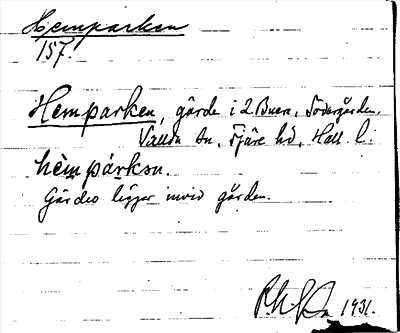 Hemparken
157.
Hemparken, gärde i 2 Buera, Södergården,
Vallda sn, Fjäre hd, Hall. l.
hèmpárkən.
Gärdet ligger invid gården.
1931.